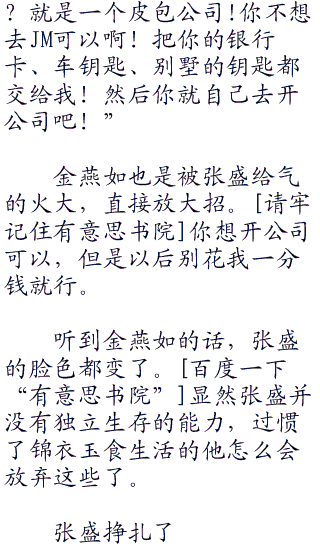 ？就是一个皮包公司!你不想
去JM可以啊！把你的银行
卡、车钥匙、别墅的钥匙都
交给我！然后你就自己去开
公司吧！”
金燕如也是被张盛给气
的火大，直接放大招。[请牢
记住有意思书院]你想开公司
可以，但是以后别花我一分
钱就行。
听到金燕如的话，张盛
的脸色都变了。[百度一下
“有意思书院”]显然张盛并
没有独立生存的能力，过惯
了锦衣玉食生活的他怎么会
放弃这些了。
张盛挣扎了